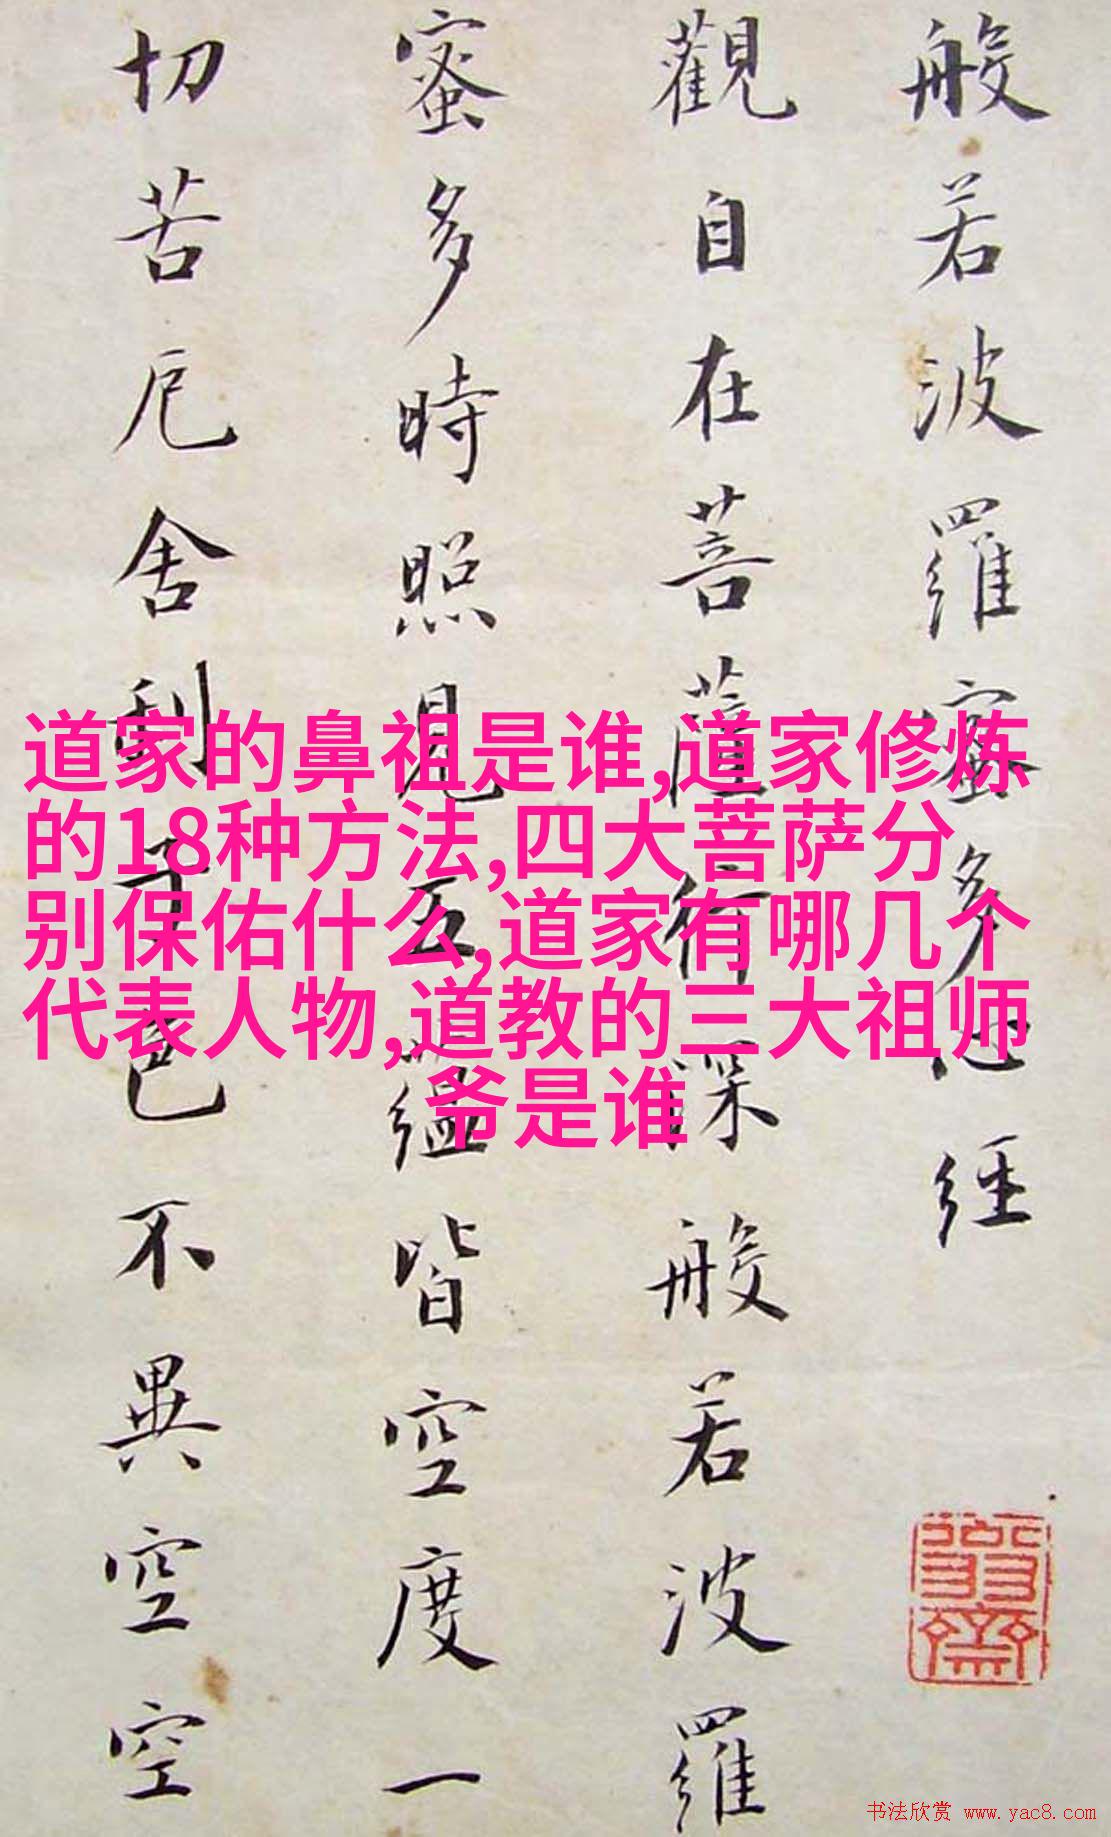 般若波羅蜜多心經
觀自在菩薩行深般若波羅
蜜多時照見五蘊皆空度一
切苦厄舍利子色不異空空
道家的鼻祖是谁,道家修炼
的18种方法,四大菩萨分
别保佑什么,道家有哪几个
代表人物,道教的三大祖师
爷是谁
书法欣赏 www.yac8.com